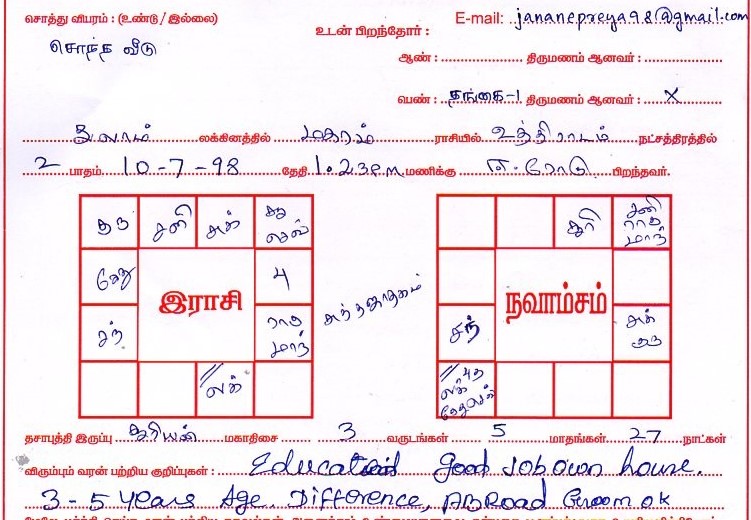 சொத்து விபரம் : (உண்டு / இல்லை)
சொந்த வீடு
E-mail: jananepreya98@gmail.com
உடன் பிறந்தோர் :
ஆண் : திருமணம் ஆனவர் :
பெண் : தங்கை-1 திருமணம் ஆனவர் : X
துலாம் லக்கினத்தில் மகரம் ராசியில் உத்திராடம் நட்சத்திரத்தில்
2 பாதம் 10-7-98 தேதி 1.23PM மணிக்கு ஈரோடு பிறந்தவர்.
குரு சனி சுக் சூ
செவ்
கேது 4
இராசி
சந் ராகு
மாந்
லக்
சுத்தஜாதகம்
சூரி சனி
ராகு
மாந்
நவாம்சம்
சந் சுக்
குரு
புத
லக்
கேது செவ்
தசாபுத்தி இருப்பு சூரியன் மகாதிசை 3 வருடங்கள் 5 மாதங்கள் 27 நாட்கள்
விரும்பும் வரன் பற்றிய குறிப்புகள் : Education good job own house.
3 - 5 years Age Difference, ABRoad Groom ok